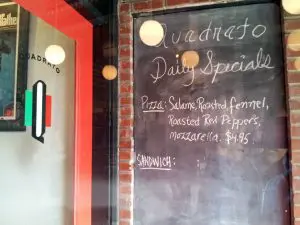 QUADRATO
Quadrato
Daily Specials
Pizza: Salame, Roasted fennel,
Roasted Red Peppers,
mozzarella. $4.95
SANDWICH: